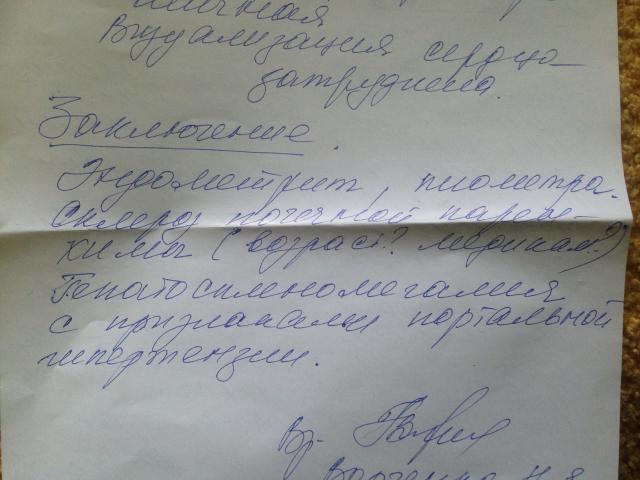 Визуализация сердца
затруднена.
Заключение.
Эндометрит, пиометра.
Склероз почечной парен-
химы (возраст? медикам.?)
Гепатоспленомегалия
с признаками портальной
гипертензии.
Вр.